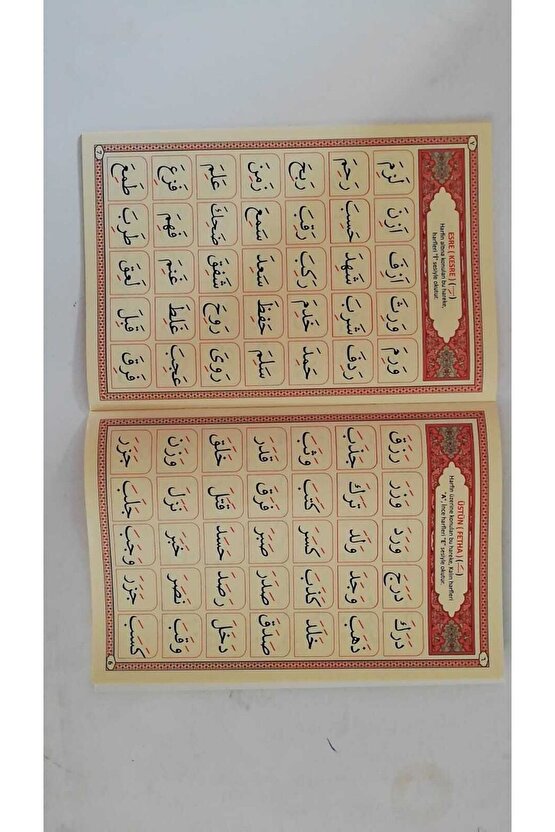 ÜSTÜN ( FETHA ) ( ـَ )
Harfin üzerine konulan bu hareke, Kalın harfleri
"A", İnce harfleri "E" sesiyle okutur.
دَرَكَ دَرَجَ وَرَدَ وَزَرَ رَزَقَ
ذَهَبَ وَجَدَ وَلَدَ تَرَكَ جَذَبَ
خَلَدَ كَذَبَ كَسَرَ كَتَبَ وَثَبَ
صَدَقَ صَدَرَ صَبَرَ فَرَقَ قَدَرَ
دَخَلَ رَصَدَ حَسَدَ قَتَلَ خَلَقَ
وَقَبَ نَصَرَ خَبَرَ نَزَلَ وَزَنَ
كَسَبَ جَزَرَ وَجَبَ جَلَبَ جَزَرَ
6
ESRE ( KESRE ) ( ـِ )
Harfin altına konulan bu hareke,
harfleri "İ" sesiyle okutur.
وَرِمَ وَرِثَ اَزِفَ اَزِنَ لَزِمَ
رَدِفَ شَرِبَ شَهِدَ حَسِبَ رَحِمَ
حَمِدَ خَدِمَ رَكِبَ رَقِبَ رَبِحَ
سَلِمَ حَفِظَ سَعِدَ سَمِعَ زَمِنَ
رَوِىَ رَوِحَ شَفِقَ ضَحِكَ عَلِمَ
عَجِبَ غَلِطَ غَنِمَ فَهِمَ فَزِعَ
فَرِقَ قَبِلَ لَعِقَ طَرِبَ طَمِعَ
7